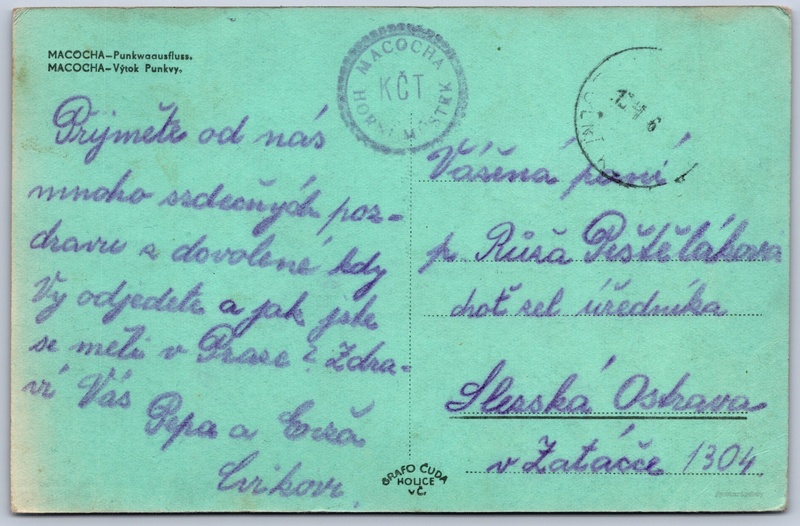 MACOCHA—Punkwaausfluss.
MACOCHA—Výtok Punkvy.
MACOCHA
KČT
HORNÍ MŮSTRY
Prijměte od nás
mnoho srdečných poz-
dravu z dovolené kdy
Vy odjedete a jak jste
se měli v Praze? Zdra-
ví Vás
Pepa a
Cvikovi
Vážená paní
p. Růžă Peštěláková
choť žel. úředníka
Slezská Ostrava
v Zatáčce 1304
GRAFO ČUDA
HOLICE
v Č.